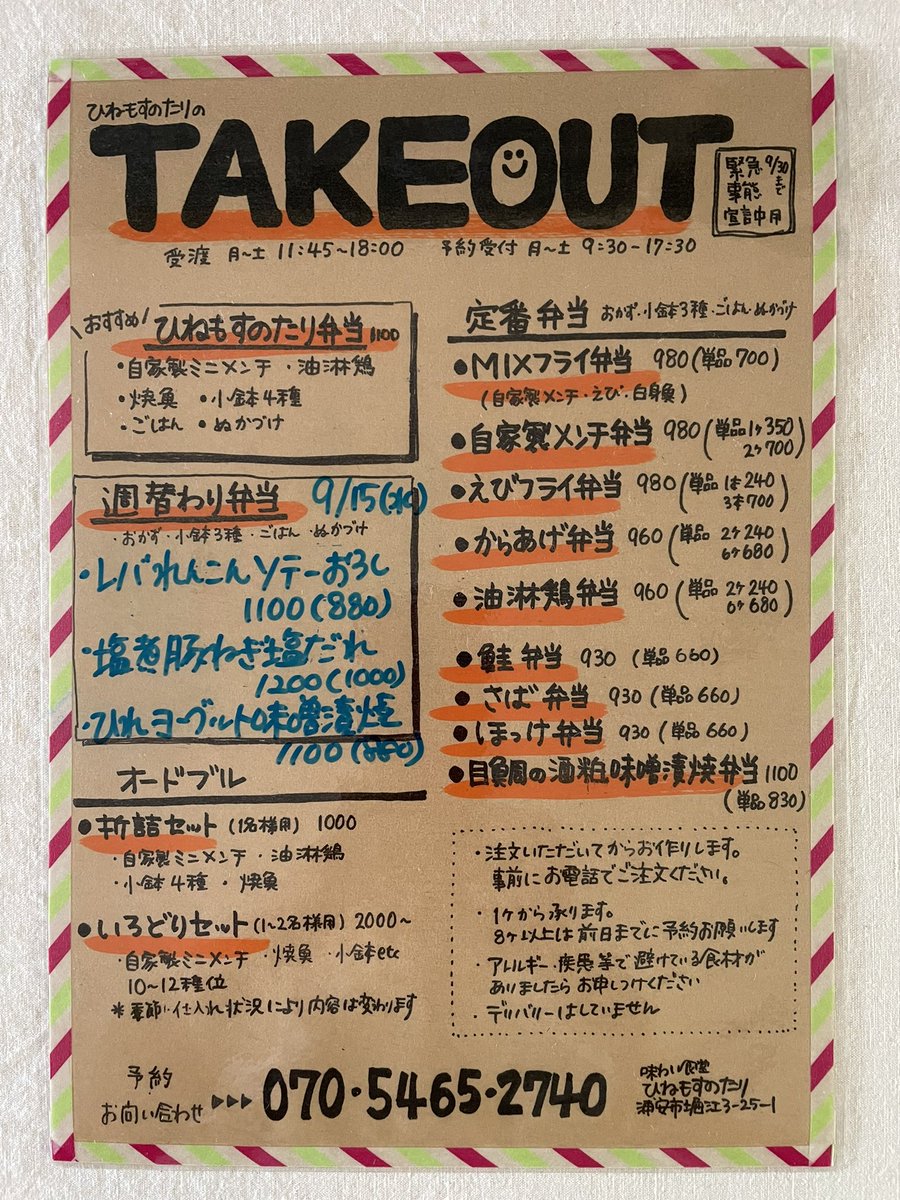 ひねもすのたりの
TAKEOUT
緊急
事態
宣言中用
9/30まで
受渡 月〜土 11:45〜18:00 予約受付 月〜土 9:30-17:30
\おすすめ/
ひねもすのたり弁当 1100
・自家製ミニメンチ ・油淋鶏
・焼魚 ・小鉢4種
・ごはん ・ぬかづけ
週替わり弁当 9/15(水)
・おかず・小鉢3種・ごはん・ぬかづけ
・レバれんこんソテーおろし
1100(880)
・塩煮豚ねぎ塩だれ
1200(1000)
・ひれヨーグルト味噌漬焼
1100(880)
オードブル
●折詰セット (1名様用) 1000
・自家製ミニメンチ ・油淋鶏
・小鉢4種 ・焼魚
●いろどりセット (1〜2名様用) 2000〜
・自家製ミニメンチ ・焼魚 ・小鉢etc
10〜12種位
*季節・仕入れ状況により内容は変わります
定番弁当 おかず・小鉢3種・ごはん・ぬかづけ
●MIXフライ弁当 980(単品700)
(自家製メンチ・えび・白身魚)
●自家製メンチ弁当 980(単品1ヶ350
2ヶ700)
●えびフライ弁当 980(単品 1本240
3本700)
●からあげ弁当 960(単品 2ヶ240
6ヶ680)
●油淋鶏弁当 960(単品 2ヶ240
6ヶ680)
●鮭弁当 930 (単品660)
●さば弁当 930(単品660)
●ほっけ弁当 930(単品660)
●目負周の酒粕味噌漬焼弁当 1100
(単品830)
・注文いただいてからお作りします。
事前にお電話でご注文ください。
・1ヶから承ります。
8ヶ以上は前日までに予約お願いします
・アレルギー・疾患等で避けている食材が
ありましたらお申しつけください
・デリバリーはしていません
予約
お問い合わせ ▶▶▶ 070・5465・2740
味わい食堂
ひねもすのたり
浦安市堀江3-25-1